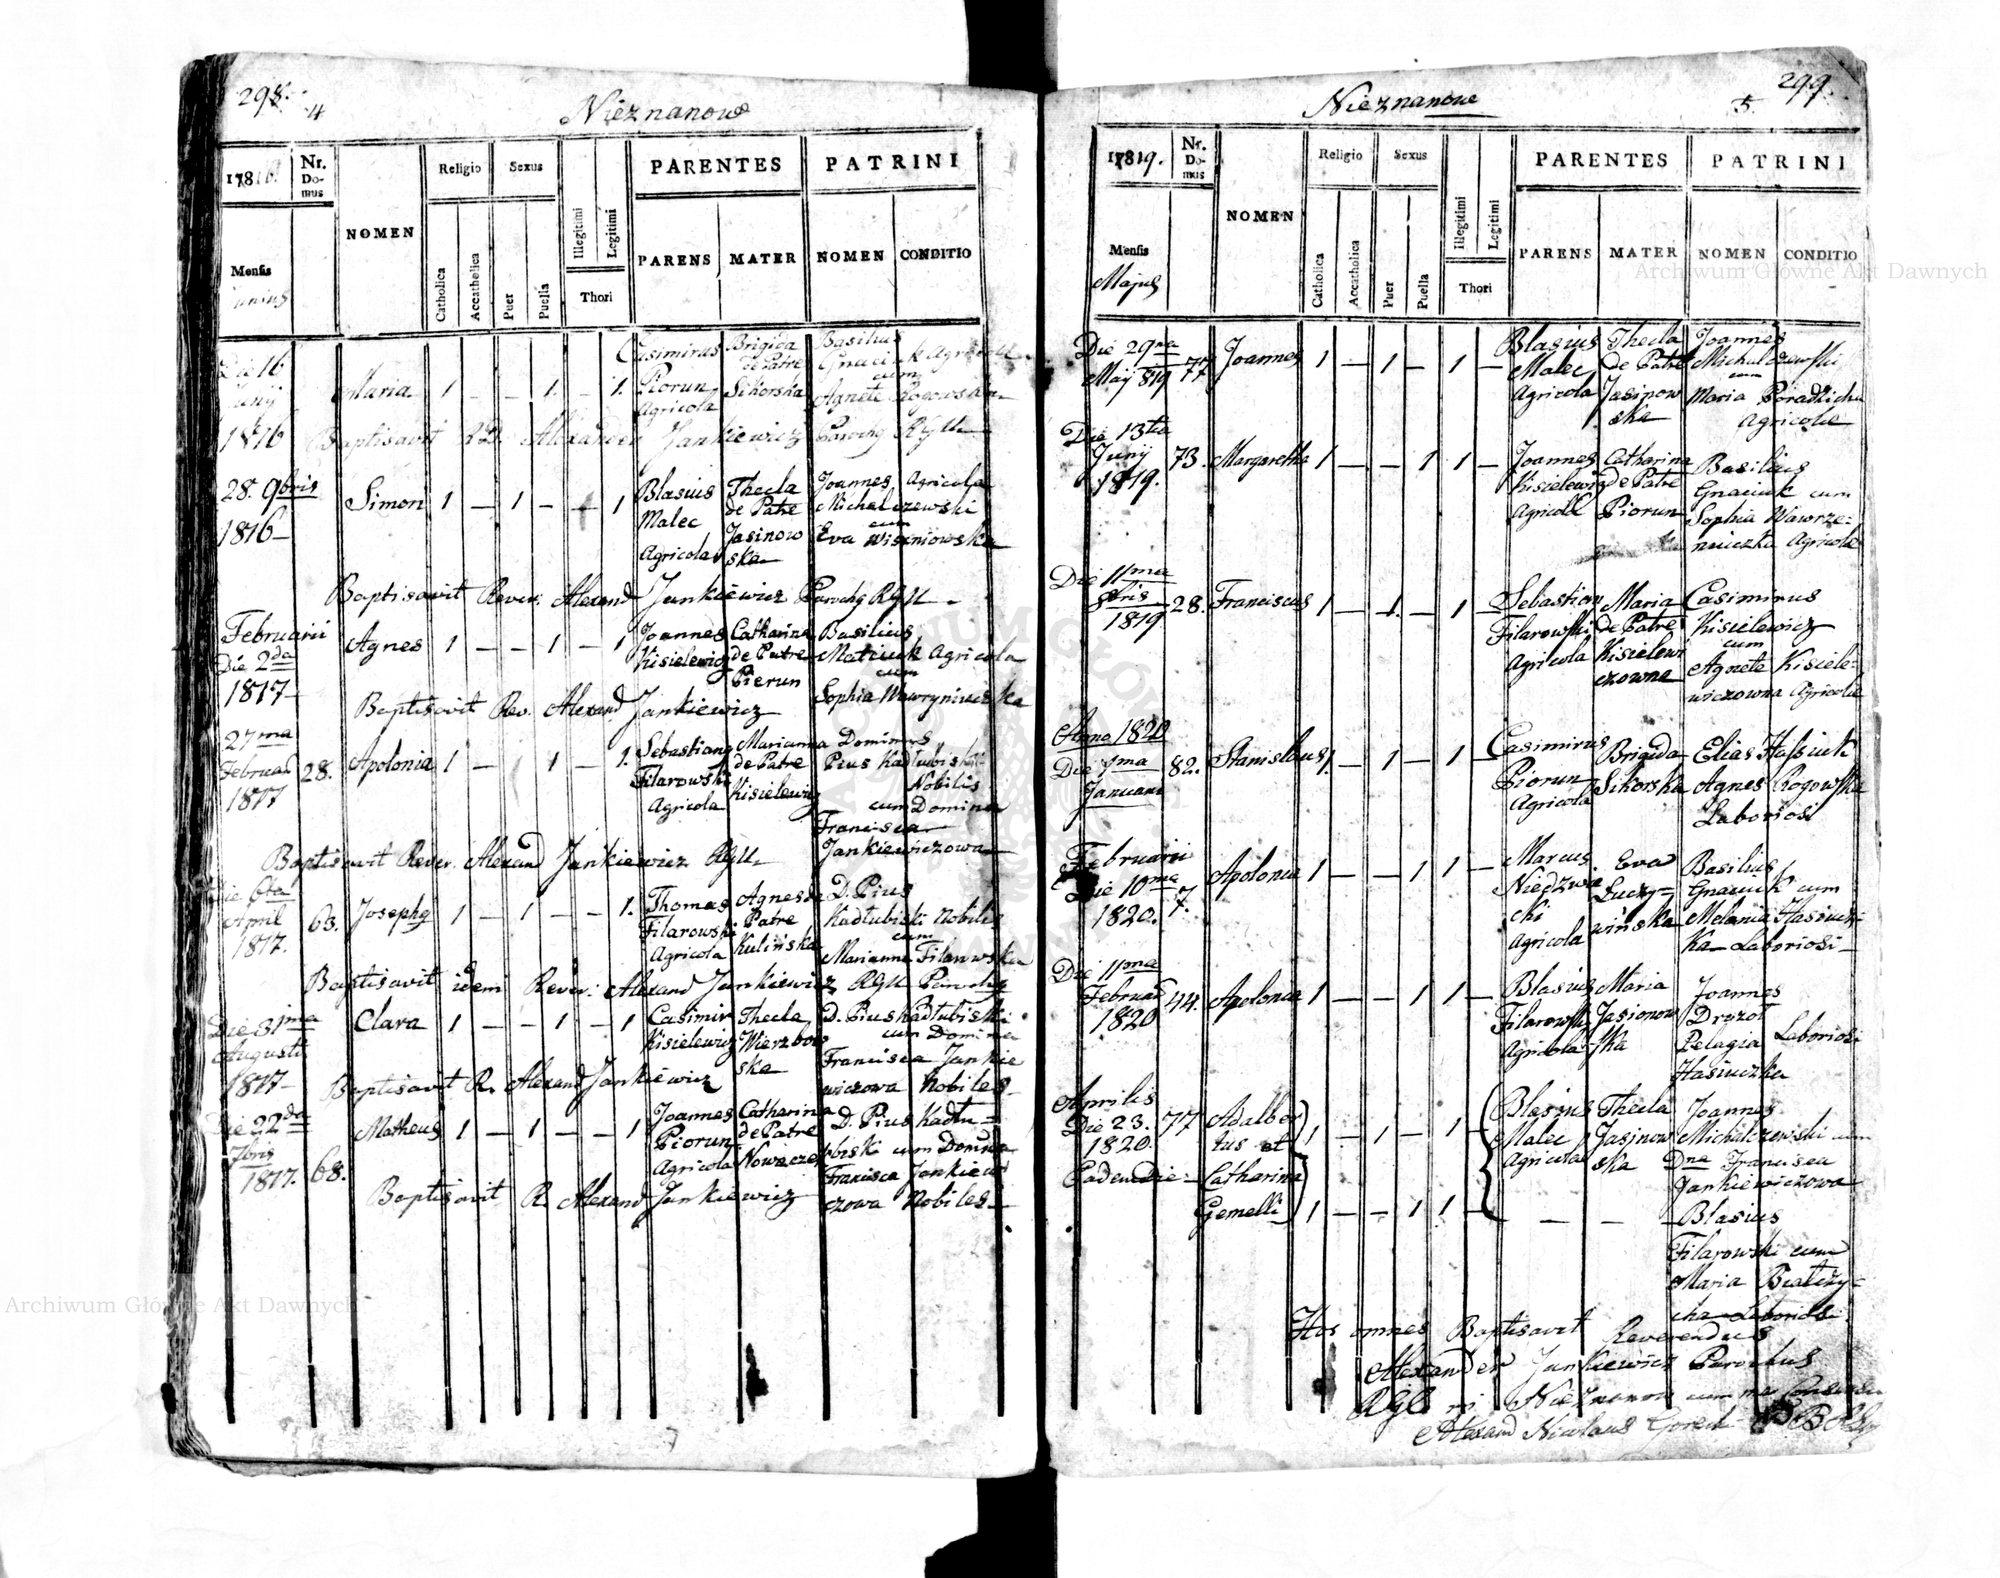 298.
4
Nieznanow
1816.
Nr. Do- mus
NOMEN
Religio
Sexus
PARENTES
PATRINI
Mensis
Junius
Catholica
Accatholica
Puer
Puella
Illegitimi
Legitimi
Thori
PARENS
MATER
NOMEN
CONDITIO
Die 16
Junij
1816
Maria 1 – – 1. – 1.
Casimirus
Piorun
Agricola
Brigida
de Patre
Sikorska
Basilius
Gnaciuk Agricola
cum
Agnete Rogowska
Baptisavit RD. Alexander Jankiewicz Parochg RGU
28. 9bris
1816
Simon 1 – 1 – – 1
Blasius
Malec
Agricola
Thecla
de Patre
Jasinow
ska
Joannes Agricola
Michalczewski
cum
Eva Wiszniowska
Baptisavit Rever. Alexand Jankiewicz Parochg RGU
Februarii
Die 2da
1817
Agnes 1 – – 1 – 1
Joannes
Kisielewicz
Catharina
de Patre
Pierun
Basilius
Matciuk Agricola
cum
Sophia Wawryniuczka
Baptisavit Rev. Alexand Jankiewicz
27ma
Februar
1817
28.
Apolonia 1 – 1 – 1.
Sebastiang
Filarowski
Agricola
Marianna
de Patre
Kisielewicz
Dominus
Pius Kadlubiski
Nobilis
cum Domina
Francisca
Jankiewiczowa
Baptisavit Rever. Alexand Jankiewicz RGU
Die 6ta
April
1817.
63.
Josephg 1 – 1 – – 1.
Thomas
Filarowski
Agricola
Agnes de
Patre
Kulińska
D. Pius
Kadłubiski Nobilis
cum
Marianna Filarowska
Baptisavit idem Rever: Alexand Jankiewicz RGU Parochg
Die 31ma
Augusti
1817
Clara 1 – – 1 – 1
Casimir
Kisielewicz
Thecla
Wierzbow
ska
D. Pius Kadłubiski
cum Domina
Francisca Jankie
wiczowa Nobiles
Baptisavit R. Alexand Jankiewicz
Die 22da
7bris
1817.
68.
Matheus 1 – 1 – – 1
Joannes
Piorun
Agricola
Catharina
de Patre
D. Pius Kadłu=
biski cum Domina
Francisca Jankiewi
czowa Nobiles
Baptisavit R. Alexand Jankiewicz
299.
5.
Nieznanow
1819.
Nr. Do- mus
NOMEN
Religio
Sexus
PARENTES
PATRINI
Mensis
Majus
Catholica
Accatholica
Puer
Puella
Illegitimi
Legitimi
Thori
PARENS
MATER
NOMEN
CONDITIO
Die 29na
Maij 819
77
Joannes 1 – 1 – 1 –
Blasius
Malec
Agricola
Thecla
de Patre
Jasinow
ska
Joannes
Michalczewski
cum
Maria
Agricolae
Die 13tia
Junij
1819.
73.
Margaretha 1 – – 1 1 –
Joannes
Kisielewicz
Agricola
Catharina
de Patre
Piorun
Basilius
Gnaciuk cum
Sophia Wawrze-
niuczka Agricolae
Die 11ma
8bris
1819
28.
Franciscus 1 – 1 – 1 –
Sebastian
Filarowski
Agricola
Maria
de Patre
Kisielewi
czowna
Casimirus
Kisielewicz
cum
Agnete Kisiele-
wiczowna Agricolae
Anno 1820
Die 1ma
Januarii
82.
Stanislaus 1. – 1 – 1 –
Casimirus
Piorun
Agricola
Brigida
Sikorska
Elias Hasiuk
Agnes Rogowska
Laboriosi
Februarii
Die 10ma
1820.
7.
Apolonia 1 – – 1 1 –
Marcus
Niedzwie
cki
Agricola
Eva
Luczy=
wińska
Basilius
Gnaciuk cum
Melania Hasiucz
ka Laboriosi
Die 11ma
Februar
1820
44.
Apolonia 1 – – 1 1 –
Blasius
Filarowski
Agricola
Maria
Jasionow
ska
Joannes
Drozol
Pelagia Laboriosi
Hasiuczka
Aprilis
Die 23.
1820.
Eadem Die
77
Adalber
tus et
Catharina
Gemelli
1 – 1 – 1 –
1 – – 1 1 –
Blasius
Malec
Agricola
Thecla
Jasinow
ska
Joannes
Michalczewski cum
Dna Francisca
Jankiewiczowa
– – – Blasius
Filarowski cum
Maria
Laboriosi
Hos omnes Baptisavit Reverendus
Alexander Jankiewicz Parochus
Alexand Nicolaus
Archiwum Główne Akt Dawnych
Archiwum Główne Akt Dawnych